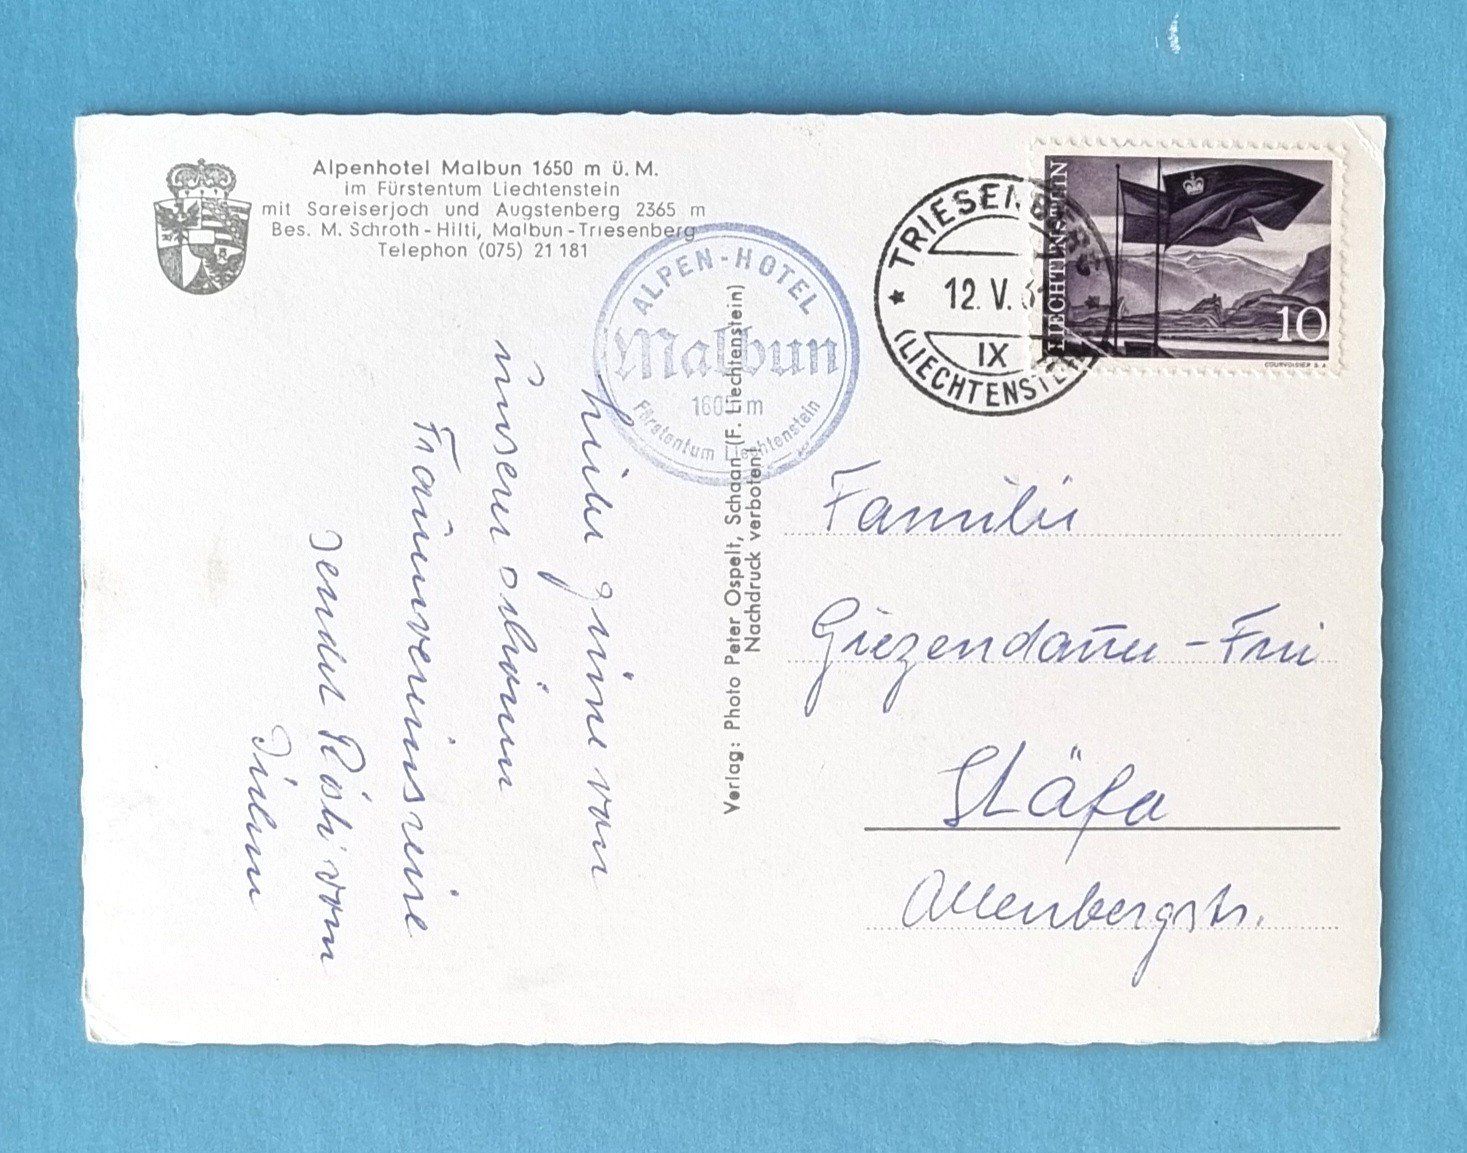 Alpenhotel Malbun 1650 m ü. M.
im Fürstentum Liechtenstein
mit Sareiserjoch und Augstenberg 2365 m
Bes. M. Schroth-Hilti, Malbun-Triesenberg
Telephon (075) 21 181
ALPEN-HOTEL
Malbun
160 m
Fürstentum Liechtenstein
TRIESENBERG
12. V. 6
IX
(LIECHTENSTEIN)
LIECHTENSTEIN
10
COURVOISIER S.A.
Liebe Grüsse von
unserer schönen
Frauenvereinsreise
sendet Rösli von
Verlag: Photo Peter Ospelt, Schaan (F. Liechtenstein)
Nachdruck verboten
Familie
Giezendanner-Frei
Stäfa
Allenbergstr.